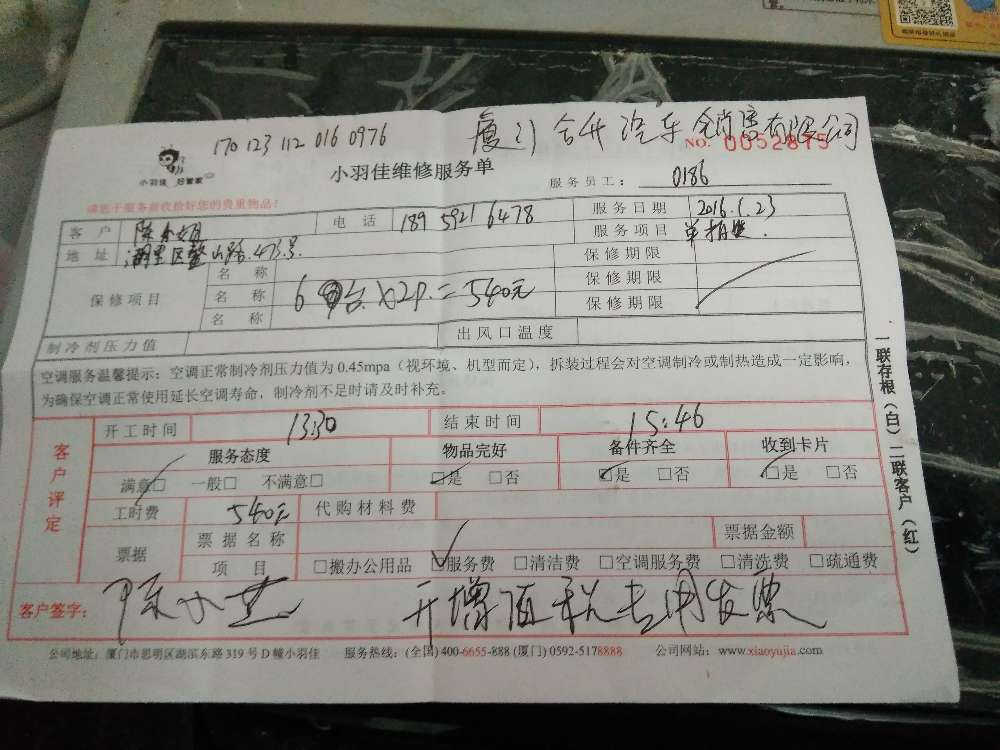 170 123 112 016 0976
汽车销售有限公司
NO. 0052875
小羽佳 好管家
小羽佳维修服务单
服务员工: 0186
请您于服务前收拾好您的贵重物品!
客户 陈小姐 电话 189 5921 6478 服务日期 2016.1.23
地址 湖里区 山路473号 服务项目
保修项目 名称 保修期限
名称 6台X2P.=540元 保修期限
名称 保修期限
制冷剂压力值 出风口温度
空调服务温馨提示:空调正常制冷剂压力值为 0.45mpa(视环境、机型而定),拆装过程会对空调制冷或制热造成一定影响,
为确保空调正常使用延长空调寿命,制冷剂不足时请及时补充。
客户评定
开工时间 13:30 结束时间 15:46
服务态度 物品完好 备件齐全 收到卡片
满意□ 一般□ 不满意□ □是 □否 □是 □否 □是 □否
工时费 540元 代购材料费
票据 票据名称 票据金额
项目 □搬办公用品 □服务费 □清洁费 □空调服务费 □清洗费 □疏通费
客户签字: 陈小 开增值税专用发票
公司地址:厦门市思明区湖滨东路 319 号 D 幢小羽佳 服务热线:(全国) 400-6655-888 (厦门) 0592-5178888 公司网站:www.xiaoyujia.com
一联存根(白)二联客户(红)